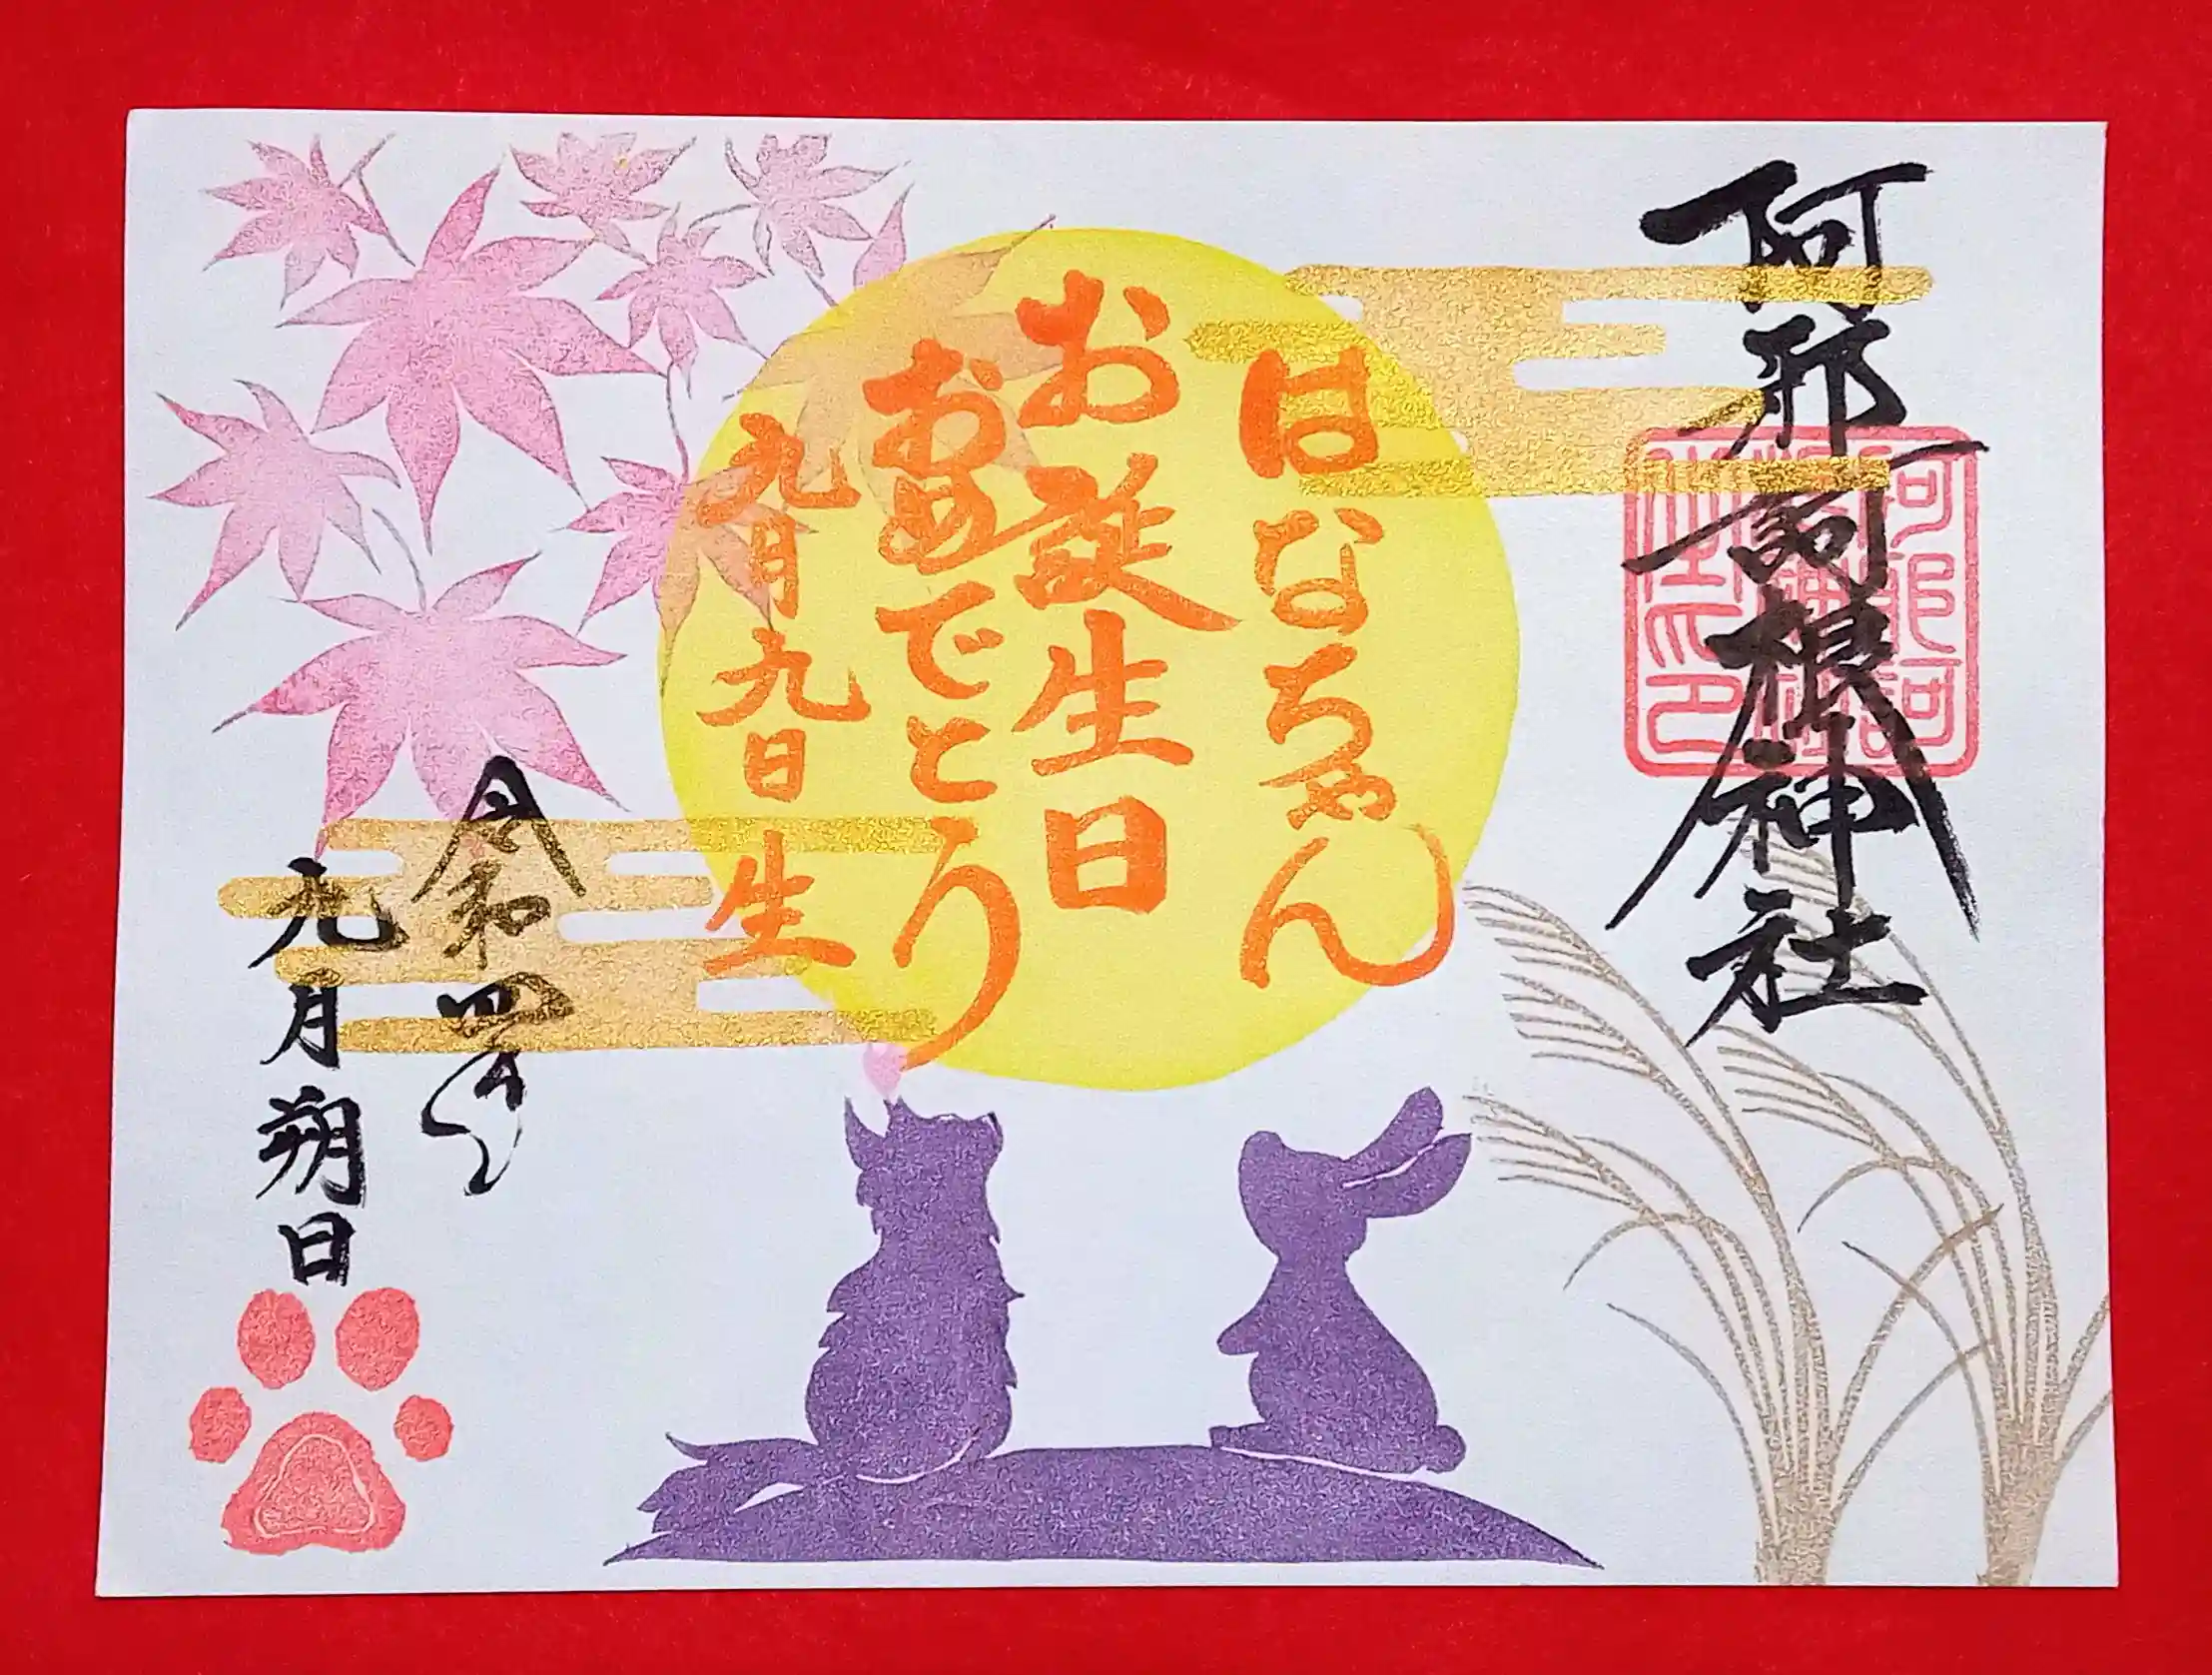 阿邪訶根神社
はなちゃん
お誕生日
おめでとう
九月九日生
令和四年
九月朔日